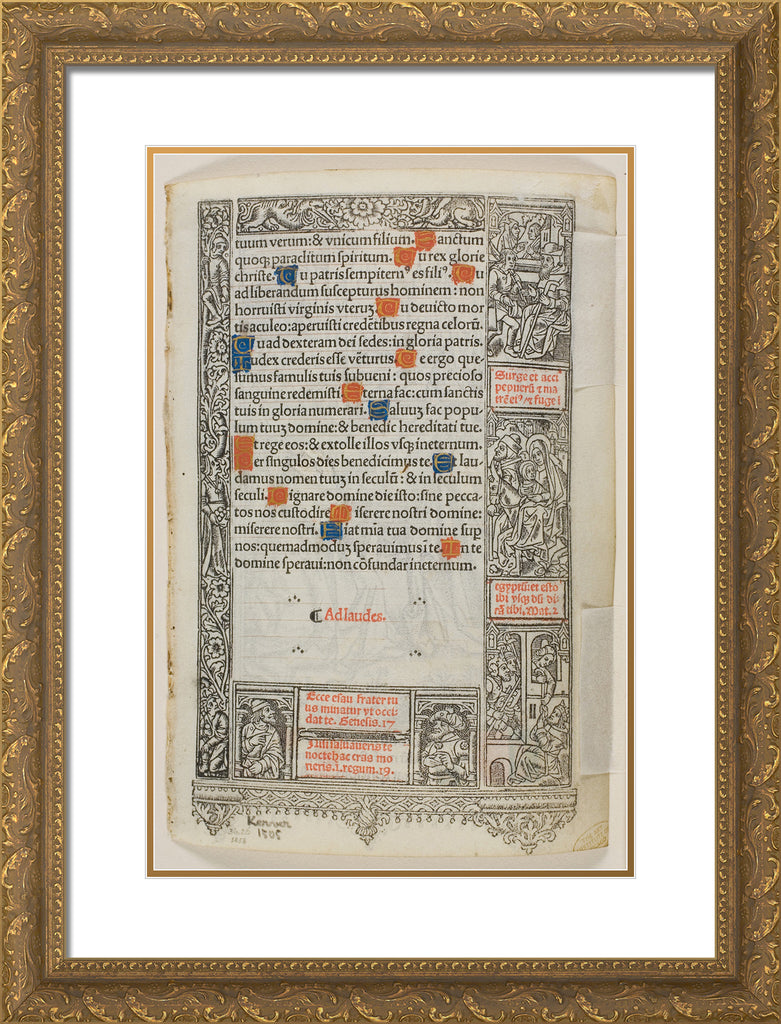 tuum verum: & vnicum filium. Sanctum
quoqꝫ paraclitum spiritum. Tu rex glorie
christe. Tu patris sempiternꝰ es filiꝰ. Tu
ad liberandum suscepturus hominem: non
horruisti virginis vteruꝫ. Tu deuicto mor
tis aculeo: aperuisti credētibus regna celorū.
Tu ad dexteram dei sedes: in gloria patris.
Iudex crederis esse vēturus. Te ergo que
sumus famulis tuis subueni: quos precioso
sanguine redemisti. Eterna fac: cum sanctis
tuis in gloria numerari. Saluuꝫ fac popu
lum tuuꝫ domine: & benedic hereditati tue.
Et rege eos: & extolle illos vsqꝫ in eternum.
Per singulos dies benedicimus te. Et lau
damus nomen tuuꝫ in seculū: & in seculum
seculi. Dignare domine die isto: sine pecca-
to nos custodire. Miserere nostri domine:
miserere nostri. Fiat mīa tua domine sup
nos: quemadmoduꝫ sperauimus ī te. In te
domine speraui: non cōfundar in eternum.
Ad laudes.
Surge et acci
pe puerū & ma
trē eiꝰ & fuge ī
egyptū et esto
ibi vsqꝫ dū di-
cā tibi. Mat. 2
Ecce esau frater tu
us minatur vt occi-
dat te. Genesis. 17
Nisi saluaueris te
nocte hac cras mo
rieris. i. regum. 19.
Kerver
1505